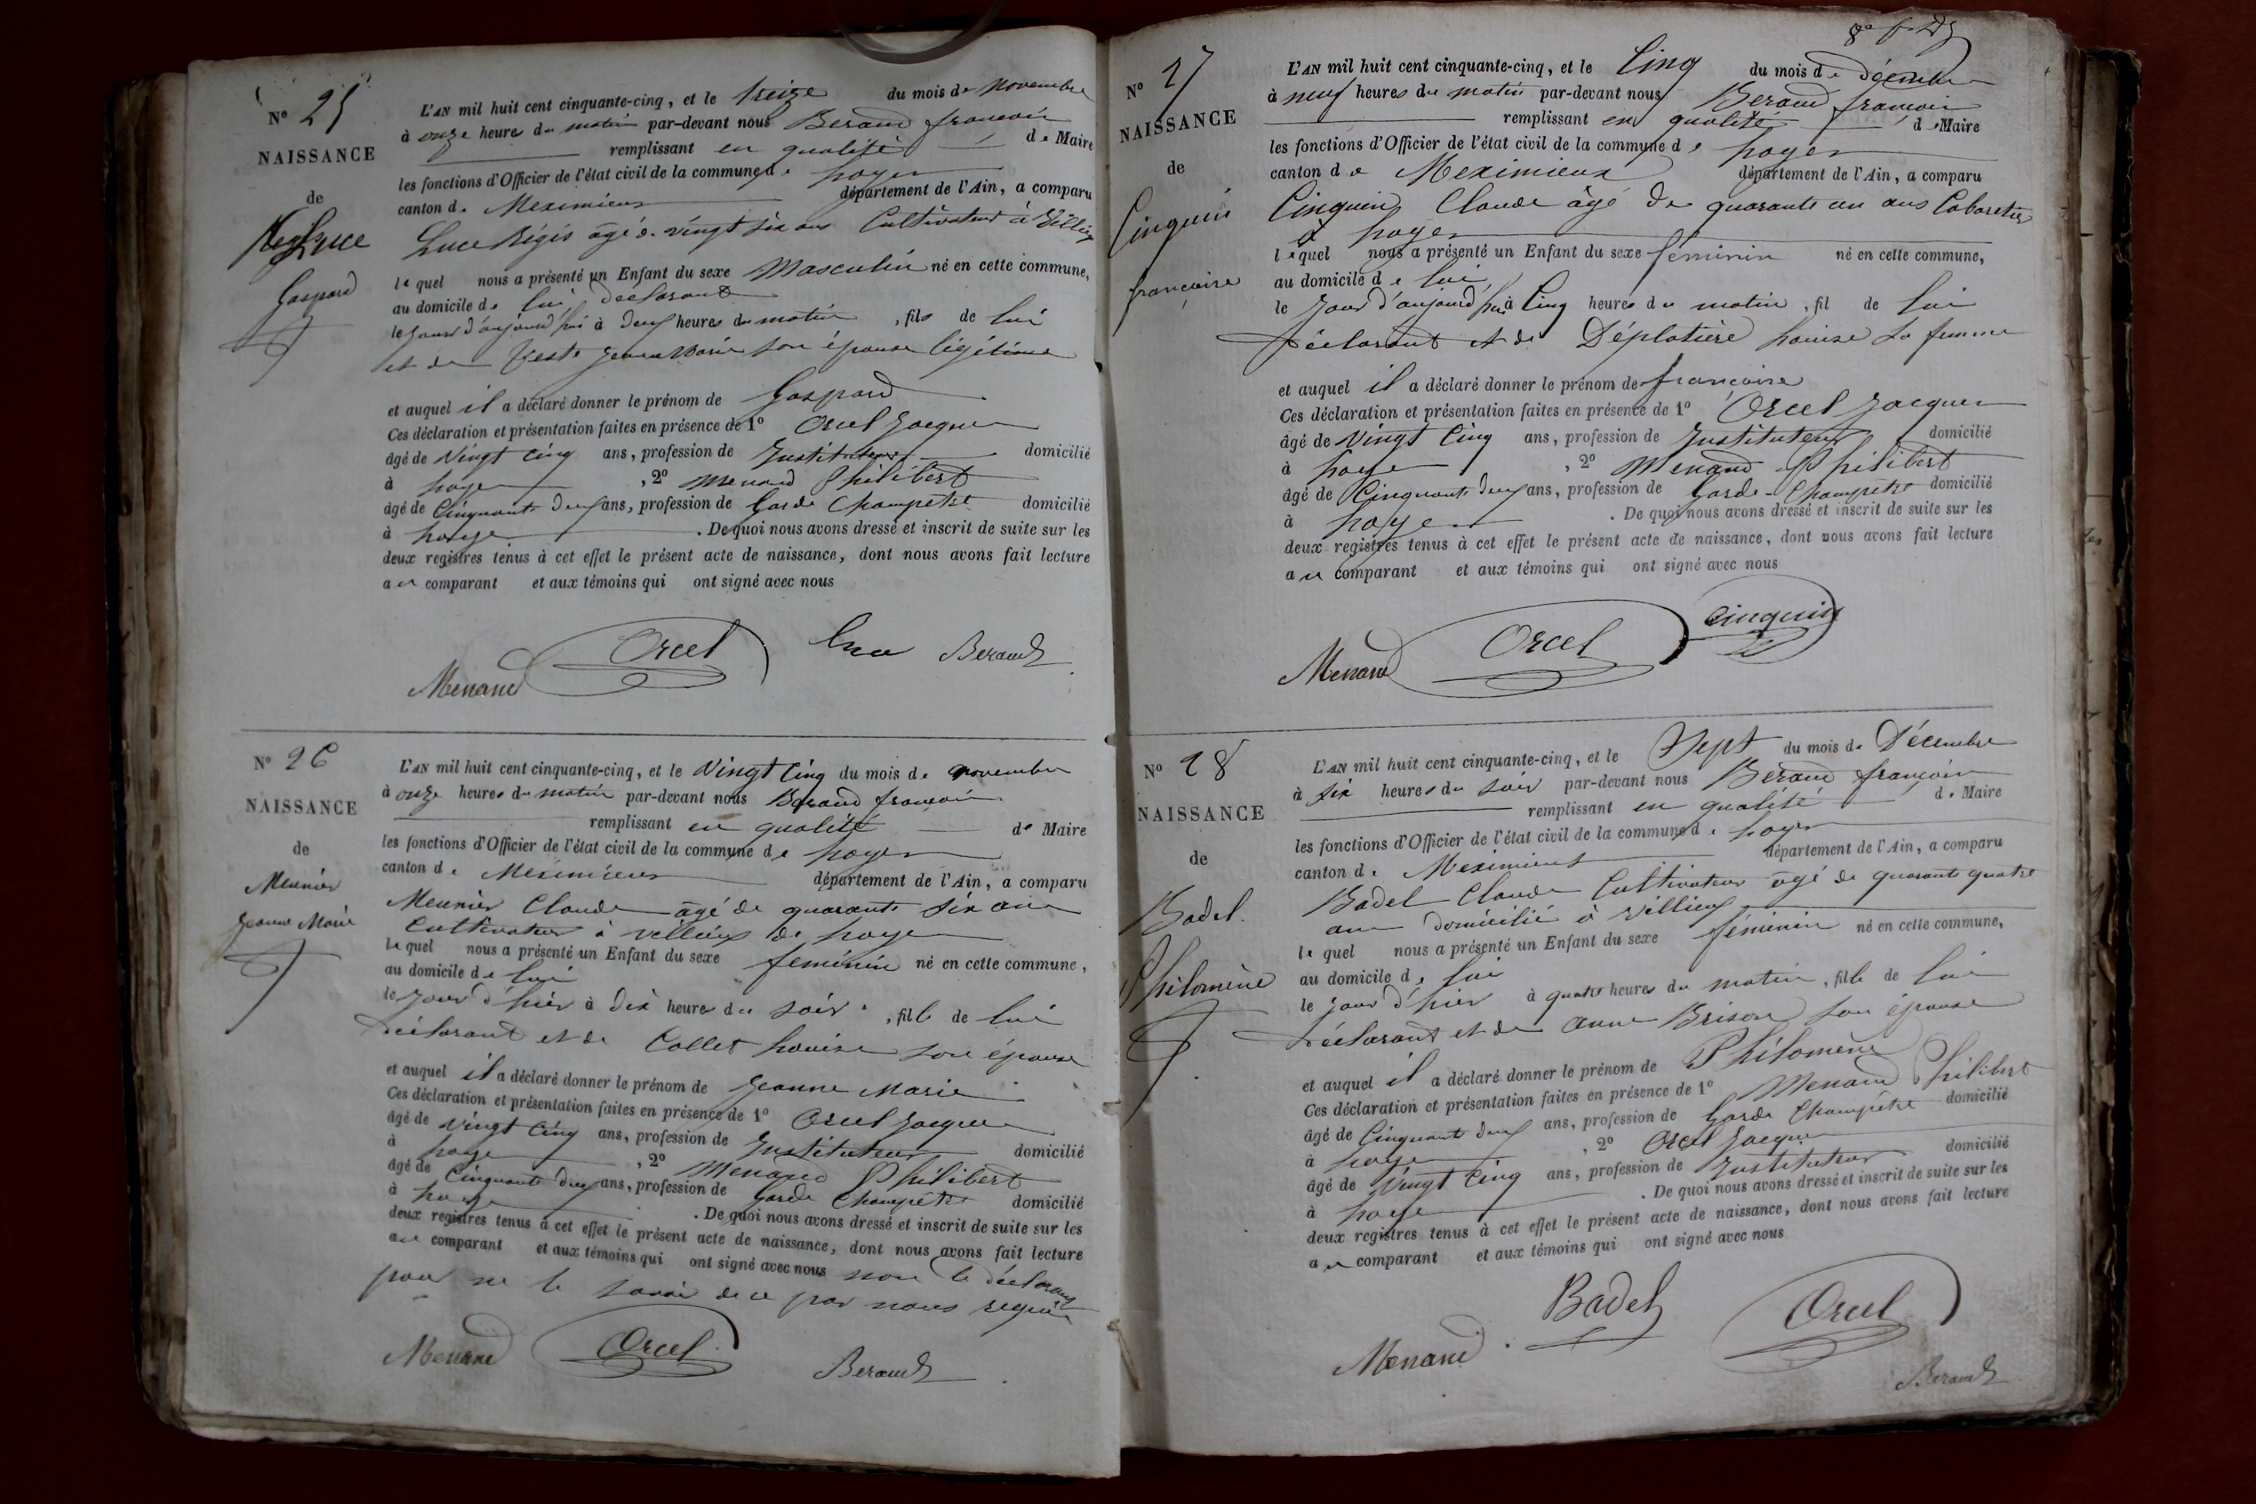 N° 25
NAISSANCE
de
Luce
Gaspard
L'AN mil huit cent cinquante-cinq, et le treize du mois de Novembre
à onze heures du matin par-devant nous Beraud françois
remplissant en qualité de Maire
les fonctions d'Officier de l'état civil de la commune de Loyes
canton de Meximieux département de l'Ain, a comparu
Luce Régis âgé de vingt six ans Cultivateur à Villieu
lequel nous a présenté un Enfant du sexe Masculin né en cette commune,
au domicile de lui déclarant
le jour d'aujourd'hui à deux heures du matin, fils de lui
et de Jeanne Marie son épouse légitime
et auquel il a déclaré donner le prénom de Gaspard
Ces déclaration et présentation faites en présence de 1° Orcel Jacques
âgé de Vingt Cinq ans, profession de Instituteur domicilié
à Loyes, 2° Menand Philibert
âgé de Cinquante deux ans, profession de Garde Champêtre domicilié
à Loyes. De quoi nous avons dressé et inscrit de suite sur les
deux registres tenus à cet effet le présent acte de naissance, dont nous avons fait lecture
au comparant et aux témoins qui ont signé avec nous
Menand Orcel Luce Beraud
N° 26
NAISSANCE
de
Meunier
Jeanne Marie
L'AN mil huit cent cinquante-cinq, et le Vingt Cinq du mois de novembre
à onze heures du matin par-devant nous Beraud françois
remplissant en qualité de Maire
les fonctions d'Officier de l'état civil de la commune de Loyes
canton de Meximieux département de l'Ain, a comparu
Meunier Claude âgé de quarante six ans
Cultivateur à Villieux de Loyes
lequel nous a présenté un Enfant du sexe féminin né en cette commune,
au domicile de lui
le jour d'hier à dix heures du soir, fille de lui
déclarant et de Collet Louise son épouse
et auquel il a déclaré donner le prénom de Jeanne Marie
Ces déclaration et présentation faites en présence de 1° Orcel Jacques
âgé de Vingt Cinq ans, profession de Instituteur domicilié
à Loyes, 2° Menand Philibert
âgé de Cinquante deux ans, profession de Garde Champêtre domicilié
à Loyes. De quoi nous avons dressé et inscrit de suite sur les
deux registres tenus à cet effet le présent acte de naissance, dont nous avons fait lecture
au comparant et aux témoins qui ont signé avec nous non le déclarant
pour ne le savoir de ce par nous requis
Menand Orcel Beraud
N° 27
NAISSANCE
de
Cinquin
françoise
L'AN mil huit cent cinquante-cinq, et le Cinq du mois de décembre
à neuf heures du matin par-devant nous Beraud françois
remplissant en qualité de Maire
les fonctions d'Officier de l'état civil de la commune de Loyes
canton de Meximieux département de l'Ain, a comparu
Cinquin Claude âgé de quarante un ans Cabaretier
à Loyes
lequel nous a présenté un Enfant du sexe féminin né en cette commune,
au domicile de lui
le jour d'aujourd'hui à Cinq heures du matin, fil de lui
déclarant et de Déplatière Louise sa femme
et auquel il a déclaré donner le prénom de françoise
Ces déclaration et présentation faites en présence de 1° Orcel Jacques
âgé de Vingt Cinq ans, profession de Instituteur domicilié
à Loyes, 2° Menand Philibert
âgé de Cinquante deux ans, profession de Garde Champêtre domicilié
à Loyes. De quoi nous avons dressé et inscrit de suite sur les
deux registres tenus à cet effet le présent acte de naissance, dont nous avons fait lecture
au comparant et aux témoins qui ont signé avec nous
Menand Orcel Cinquin
N° 28
NAISSANCE
de
Badel
Philomène
L'AN mil huit cent cinquante-cinq, et le Sept du mois de Décembre
à six heures du soir par-devant nous Béraud françois
remplissant en qualité de Maire
les fonctions d'Officier de l'état civil de la commune de Loyes
canton de Meximieux département de l'Ain, a comparu
Badel Claude Cultivateur âgé de quarante quatre
ans domicilié à Villieux
lequel nous a présenté un Enfant du sexe féminin né en cette commune,
au domicile de lui
le jour d'hier à quatre heures du matin, fille de lui
déclarant et de anne Brison son épouse
et auquel il a déclaré donner le prénom de Philomène
Ces déclaration et présentation faites en présence de 1° Menand Philibert
âgé de Cinquante deux ans, profession de Garde Champêtre domicilié
à Loyes, 2° Orcel Jacques
âgé de Vingt Cinq ans, profession de Instituteur domicilié
à Loyes. De quoi nous avons dressé et inscrit de suite sur les
deux registres tenus à cet effet le présent acte de naissance, dont nous avons fait lecture
au comparant et aux témoins qui ont signé avec nous
Badel Orcel
Menand
Beraud